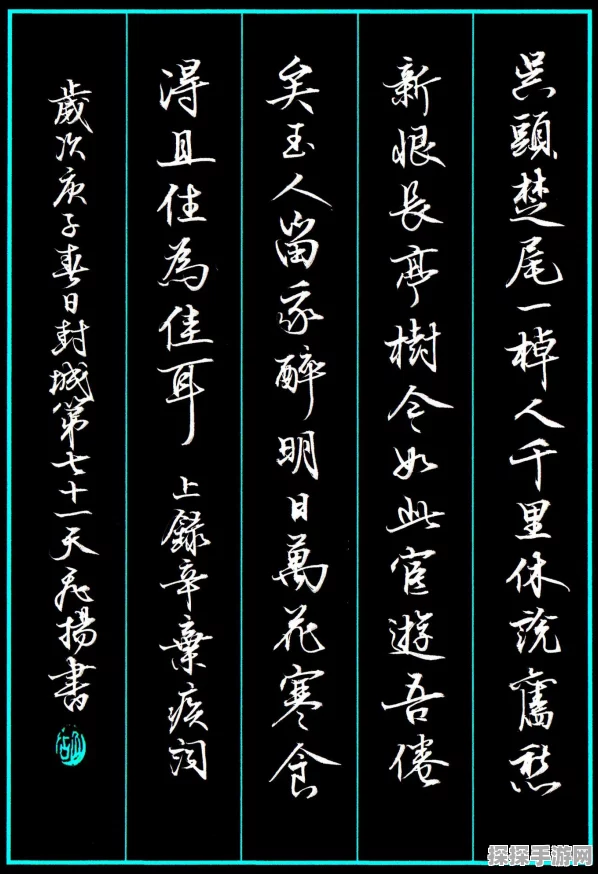 吳頭楚尾一棹人千里休說舊愁
新恨長亭樹今如此宦遊吾倦
矣玉人留我醉明日萬花寒食
得且住為佳耳 上錄辛棄疾詞
歲次庚子春日封城第七十一天飛揚書
探探手游网